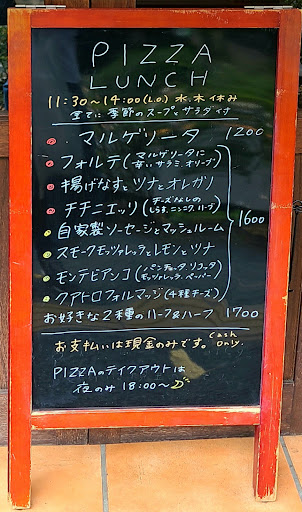 PIZZA
LUNCH
11:30〜14:00(L.O.) 水、木 休み
全てに 季節のスープとサラダ付
マルゲリータ 1200
フォルテ(マルゲリータに 辛いサラミ、オリーブ)
揚げなすとツナとオレガノ
チチニエッリ(チーズなしの しらす、ニンニク、ハーブ)
自家製ソーセージとマッシュルーム
1600
スモークモッツァレッラとレモンとツナ
モンテビアンコ(パンチェッタ、リコッタ モッツァレッラ、ペッパー)
クアトロフォルマッジ(4種チーズ)
お好きな2種のハーフ&ハーフ 1700
お支払いは現金のみです。Cash Only.
PIZZAのテイクアウトは
夜のみ 18:00〜